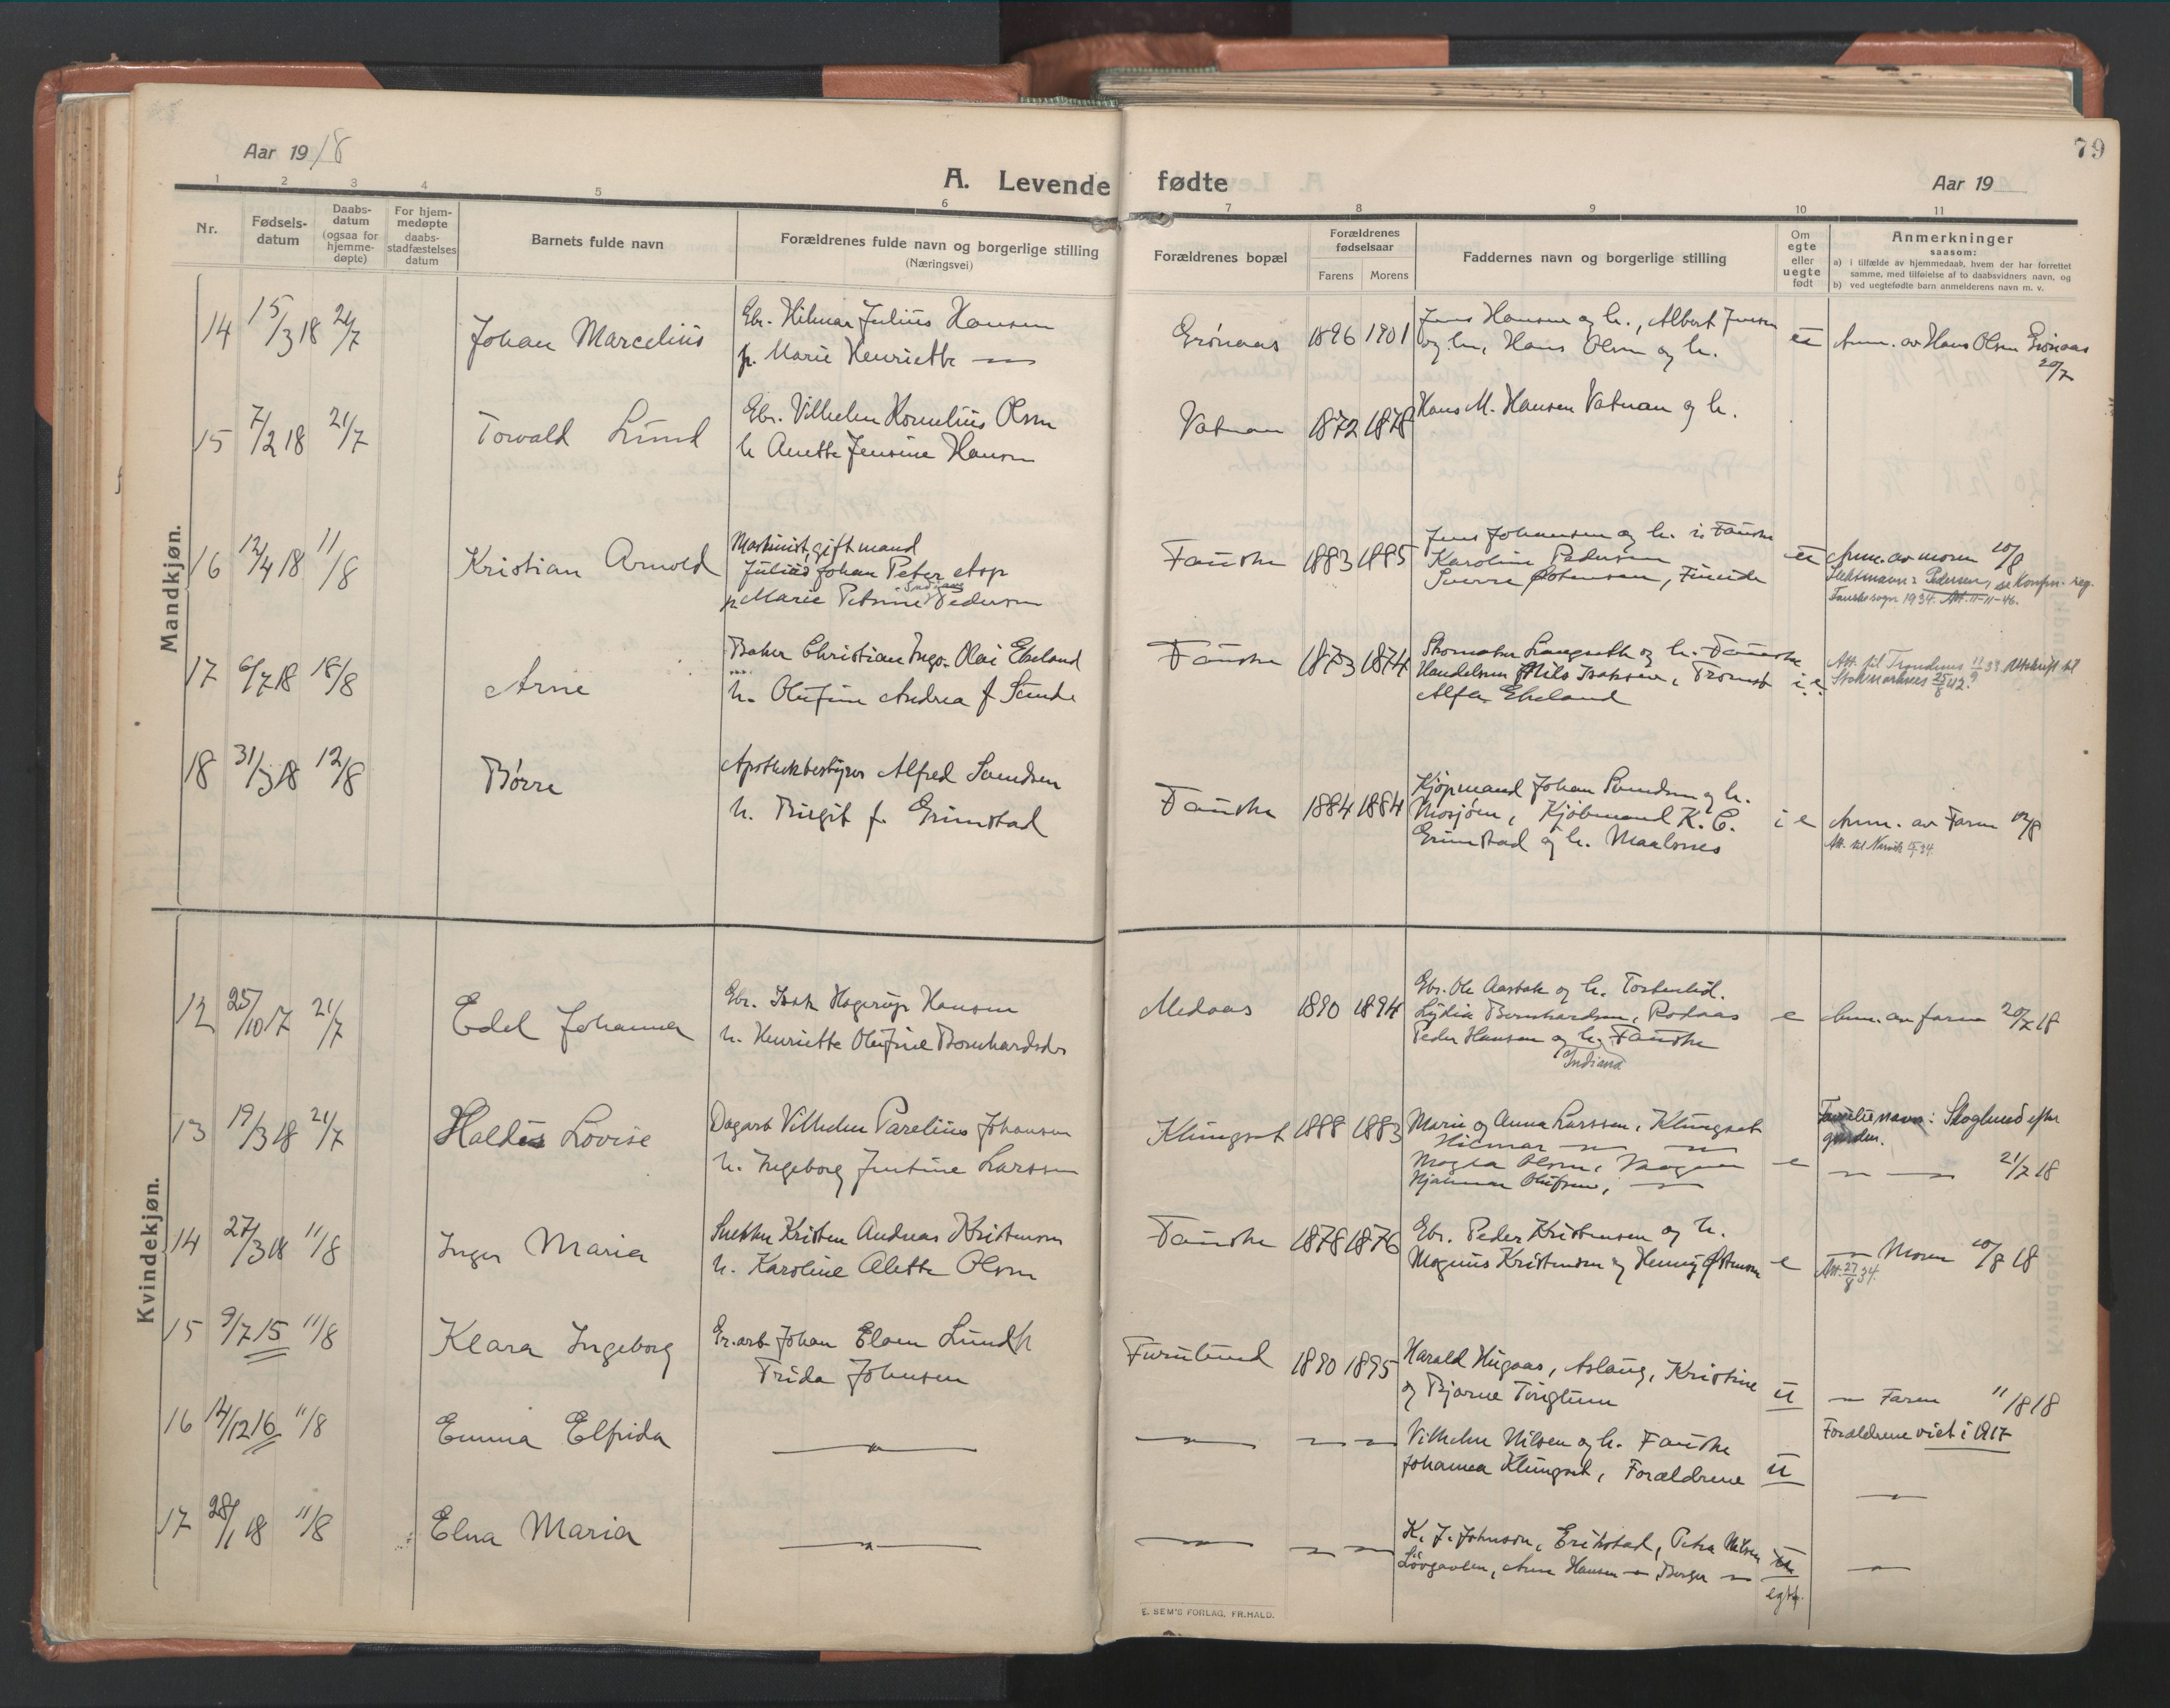 79
Aar 1918
A. Levende fødte
Aar 19
1 2 3 4 5 6 7 8 9 10 11
Nr.
Fødsels-
datum
Daabs-
datum
(ogsaa for
hjemme-
døpte)
For hjem-
medøpte
daabs-
stadfæstelses
datum
Barnets fulde navn
Forældrenes fulde navn og borgerlige stilling
(Næringsvei)
Forældrenes bopæl
Forældrenes
fødselsaar
Farens Morens
Faddernes navn og borgerlige stilling
Om
egte
eller
uegte
født
Anmerkninger
saasom:
a) i tilfælde av hjemmedaab, hvem der har forrettet
samme, med tilføielse af to daabsvidners navn, og
b) ved uegtefødte barn anmelderens navn m. v.
Mandkjøn.
14 15/3 18 21/7 Johan Marcelius
Gbr. Hilmar Julius Hansen
p. Marie Henriette
Grønaas 1896 1901
Jens Hansen og h., Albert Jensen
og h., Hans Olsen og h.
Anm. av Hans Olsen Grønaas
20/7
15 7/2 18 21/7 Torvald Lund
Gbr. Vilhelm Kornelius Olsen
h Anette Jensine Hansen
Vatnan 1872 1878
Hans M. Hansen Vatnan og h.
16 12/4 18 11/8 Kristian Arnold
Maskinist, gift mand
Julius Johan Peter Asp
p Marie Petrine Pedersen
Fauske 1883 1885
Jens Johansen og h. i Fauske
Karoline Pedersen
Sverre, Fineide
Anm. av moren 10/8
Slektsnavn: Pedersen, se konfm. reg.
Fauske sogn 1934. Att. 11-11-46.
17 6/7 18 18/8 Arne
Baker Christian Ingv. Olai Ekeland
h. Olufine Andrea f Sunde
Fauske 1873 1874
Skomaker Langseth og h. Fauske
Handelsm Nils Isaksen, Tromsø
Alfer Ekeland
i. e.
Att. til Trondenes 11/9 33 Utskrift til
Stokmarknes 25/8 42.
18 31/3 18 12/8 Børre
Apothekbestyrer Alfred Svendsen
h. Birgit f. Grimstad
Fauske 1884 1884
Kjøpmand Johan Svendsen og h.
Mosjøen, Kjöbmand K. C.
Grimstad og h. Maalsnes
i e
Anm. av Faren 10/8
Att. til Narvik 34.
Kvindekjøn.
12 25/10 17 21/7 Edel Johanna
Gbr. Isak Hagerup Hansen
h. Henriette Olufine Bernhardsdr
Medaas 1890 1894
Gbr. Ole Aasbak og h. Tortenlid.
Lydia Bernhardsen, Rodaas
Peder Hansen og h. Fauske
Indiana
e
Anm. av faren 20/7 18
13 19/3 18 21/7 Haldis Lovise
Dagarb Vilhelm Parelius Johansen
h. Ingeborg Jentine Larssen
Klungset 1888 1883
Marie og Anna Larssen, Klungset
Hilmar
Magda Olsen, Vaagan
Hjalmar Olufsen,
e
Familienavn: Skoglund efter
gaarden.
21/7 18
14 27/3 18 11/8 Inger Maria
Snekker Kristen Andreas Kristensen
h. Karoline Alette Olsen
Fauske 1878 1876
Gbr. Peder Kristensen og h.
Magnus Kristensen og Henny Østensen
e
Moren 10/8 18
Att. 27/8 34.
15 9/7 15 11/8 Klara Ingeborg
Gr.arb Johan Eloen Lund h
Frida Johnsen
Furulund 1890 1895
Harald Hugaas, Aslaug, Kristine
og Bjarne Tinglum
u
Faren 11/8 18
16 14/12 16 11/8 Emma Elfrida
Vilhelm Nilsen og h. Fauske
Johanna Klungset, Forældrene
u
Forældrene viet i 1917
17 28/1 18 11/8 Elna Maria
K. J. Johnsen, Erikstad, Petra Nilsen
Lövgavlen, Arne Hansen, Borger
egte.
E. SEM'S FORLAG, FR.HALD.